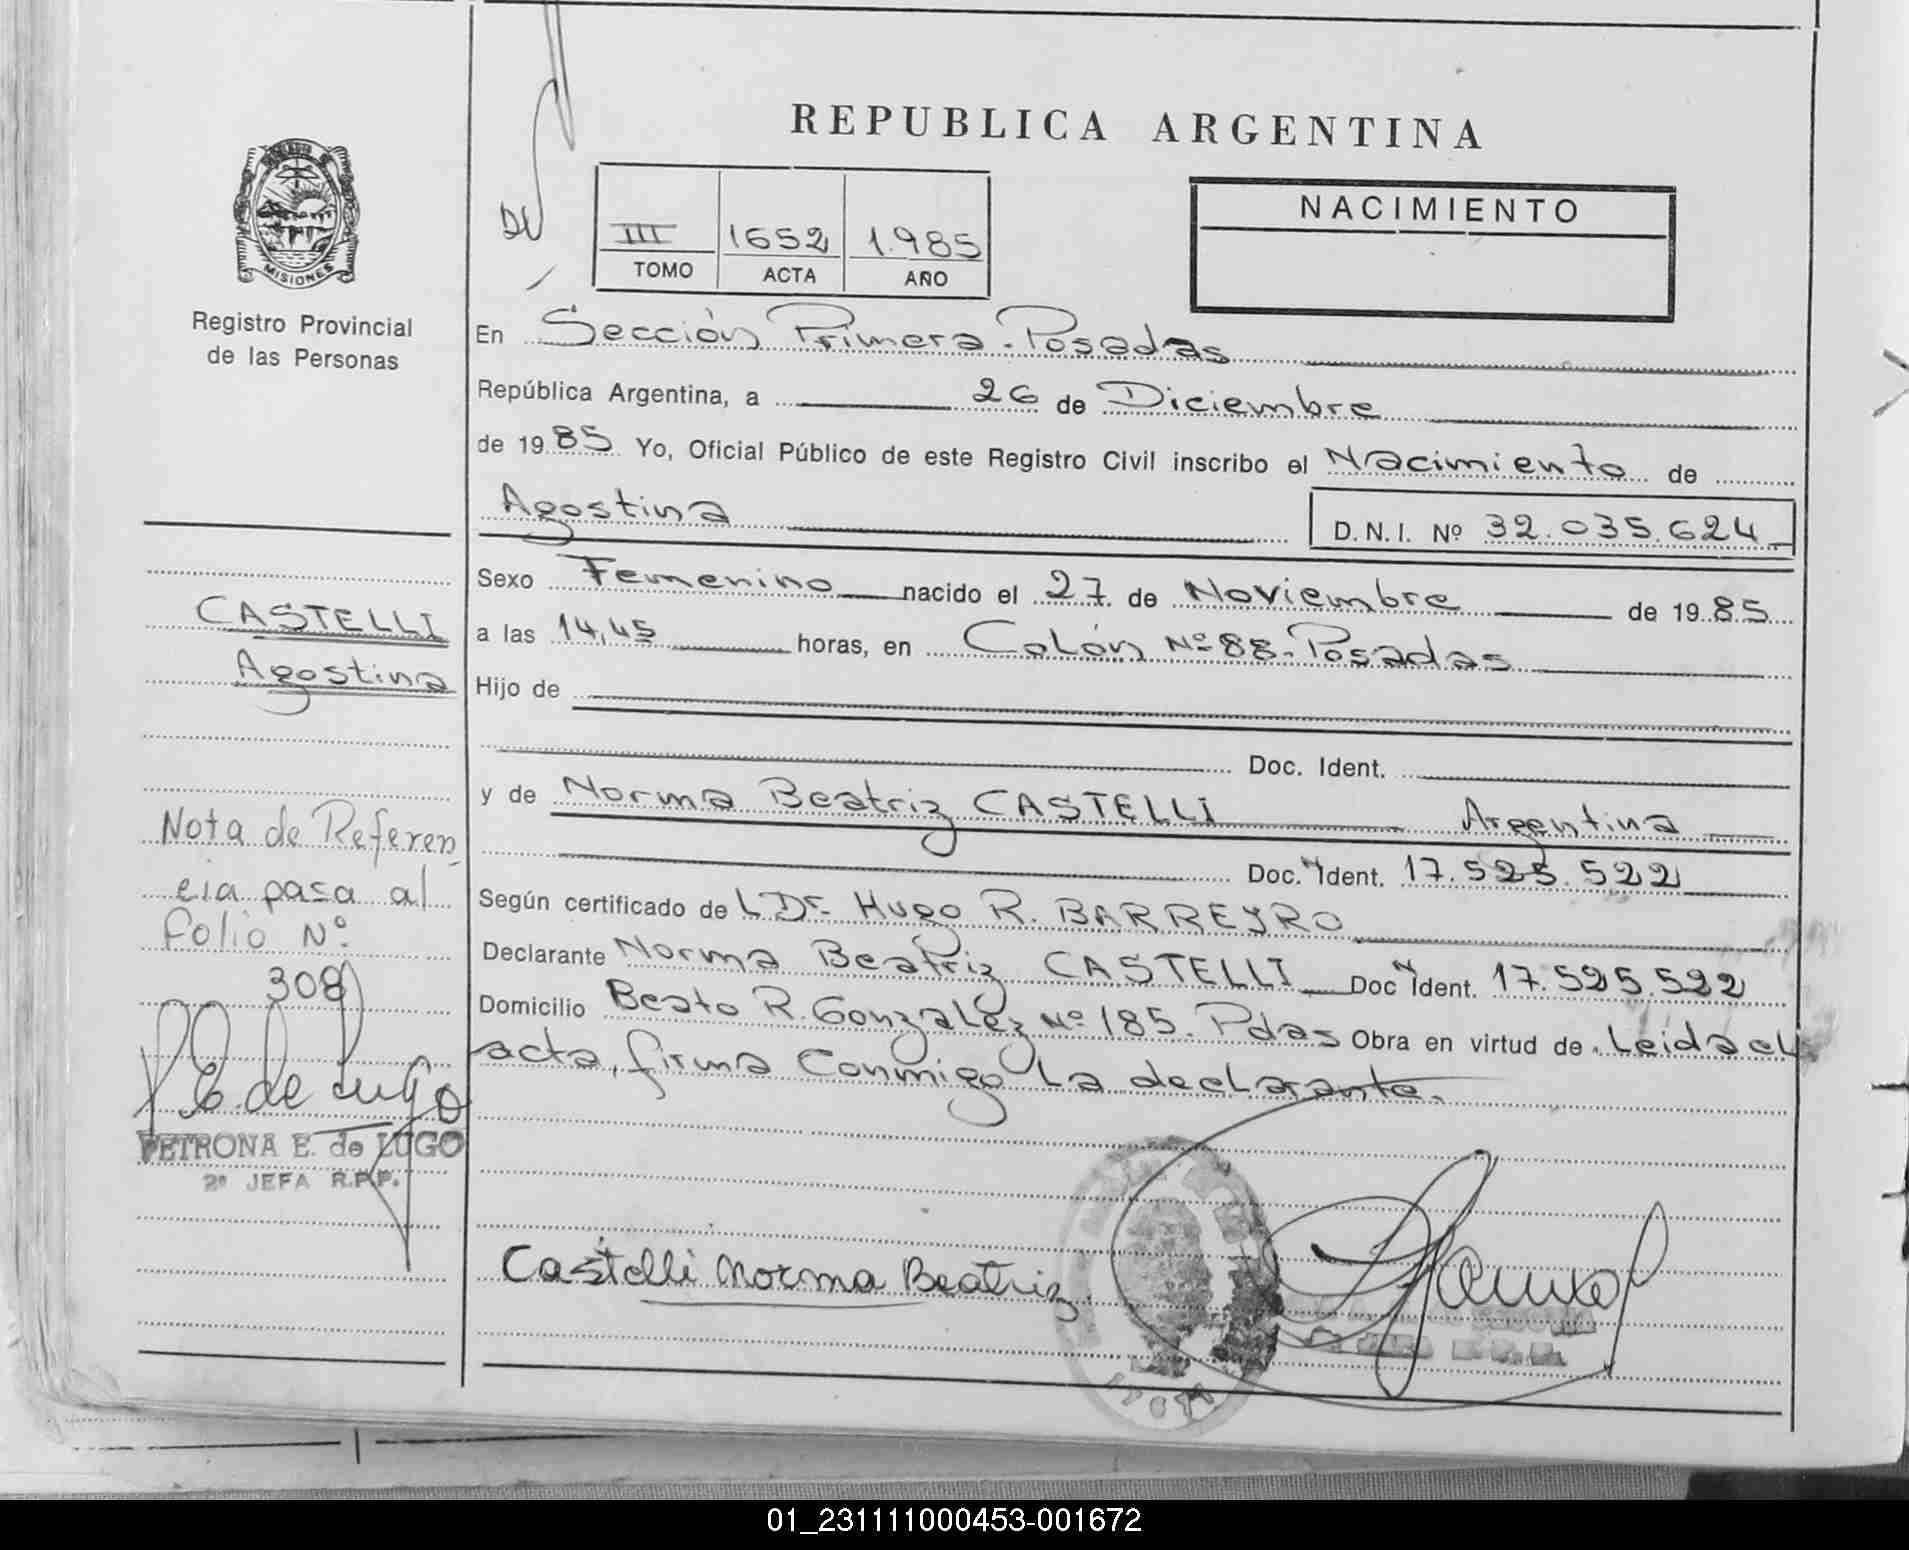 REPUBLICA ARGENTINA
MISIONES
Registro Provincial
de las Personas
III 1652 1.985
TOMO ACTA AÑO
NACIMIENTO
En Sección Primera. Posadas
República Argentina, a 26 de Diciembre
de 1985 Yo, Oficial Público de este Registro Civil inscribo el Nacimiento de
Agostina D.N.I. Nº 32.035.624
Sexo Femenino nacido el 27 de Noviembre de 1985
a las 14,45 horas, en Colón Nº 88. Posadas
Hijo de
Doc. Ident.
y de Norma Beatriz CASTELLI Argentina
Doc. N Ident. 17.525.522
Según certificado de L Dr. Hugo R. BARREYRO
Declarante Norma Beatriz CASTELLI Doc N Ident. 17.525.522
Domicilio Beato R. Gonzalez Nº 185. Pdas Obra en virtud de Leida el
acta, firma Conmigo La declarante.
Castelli Norma Beatriz
CASTELLI
Agostina
Nota de Referen
cia pasa al
folio Nº
308
P E. de Lugo
PETRONA E. de LUGO
2ª JEFA R.P.P.
01_231111000453-001672